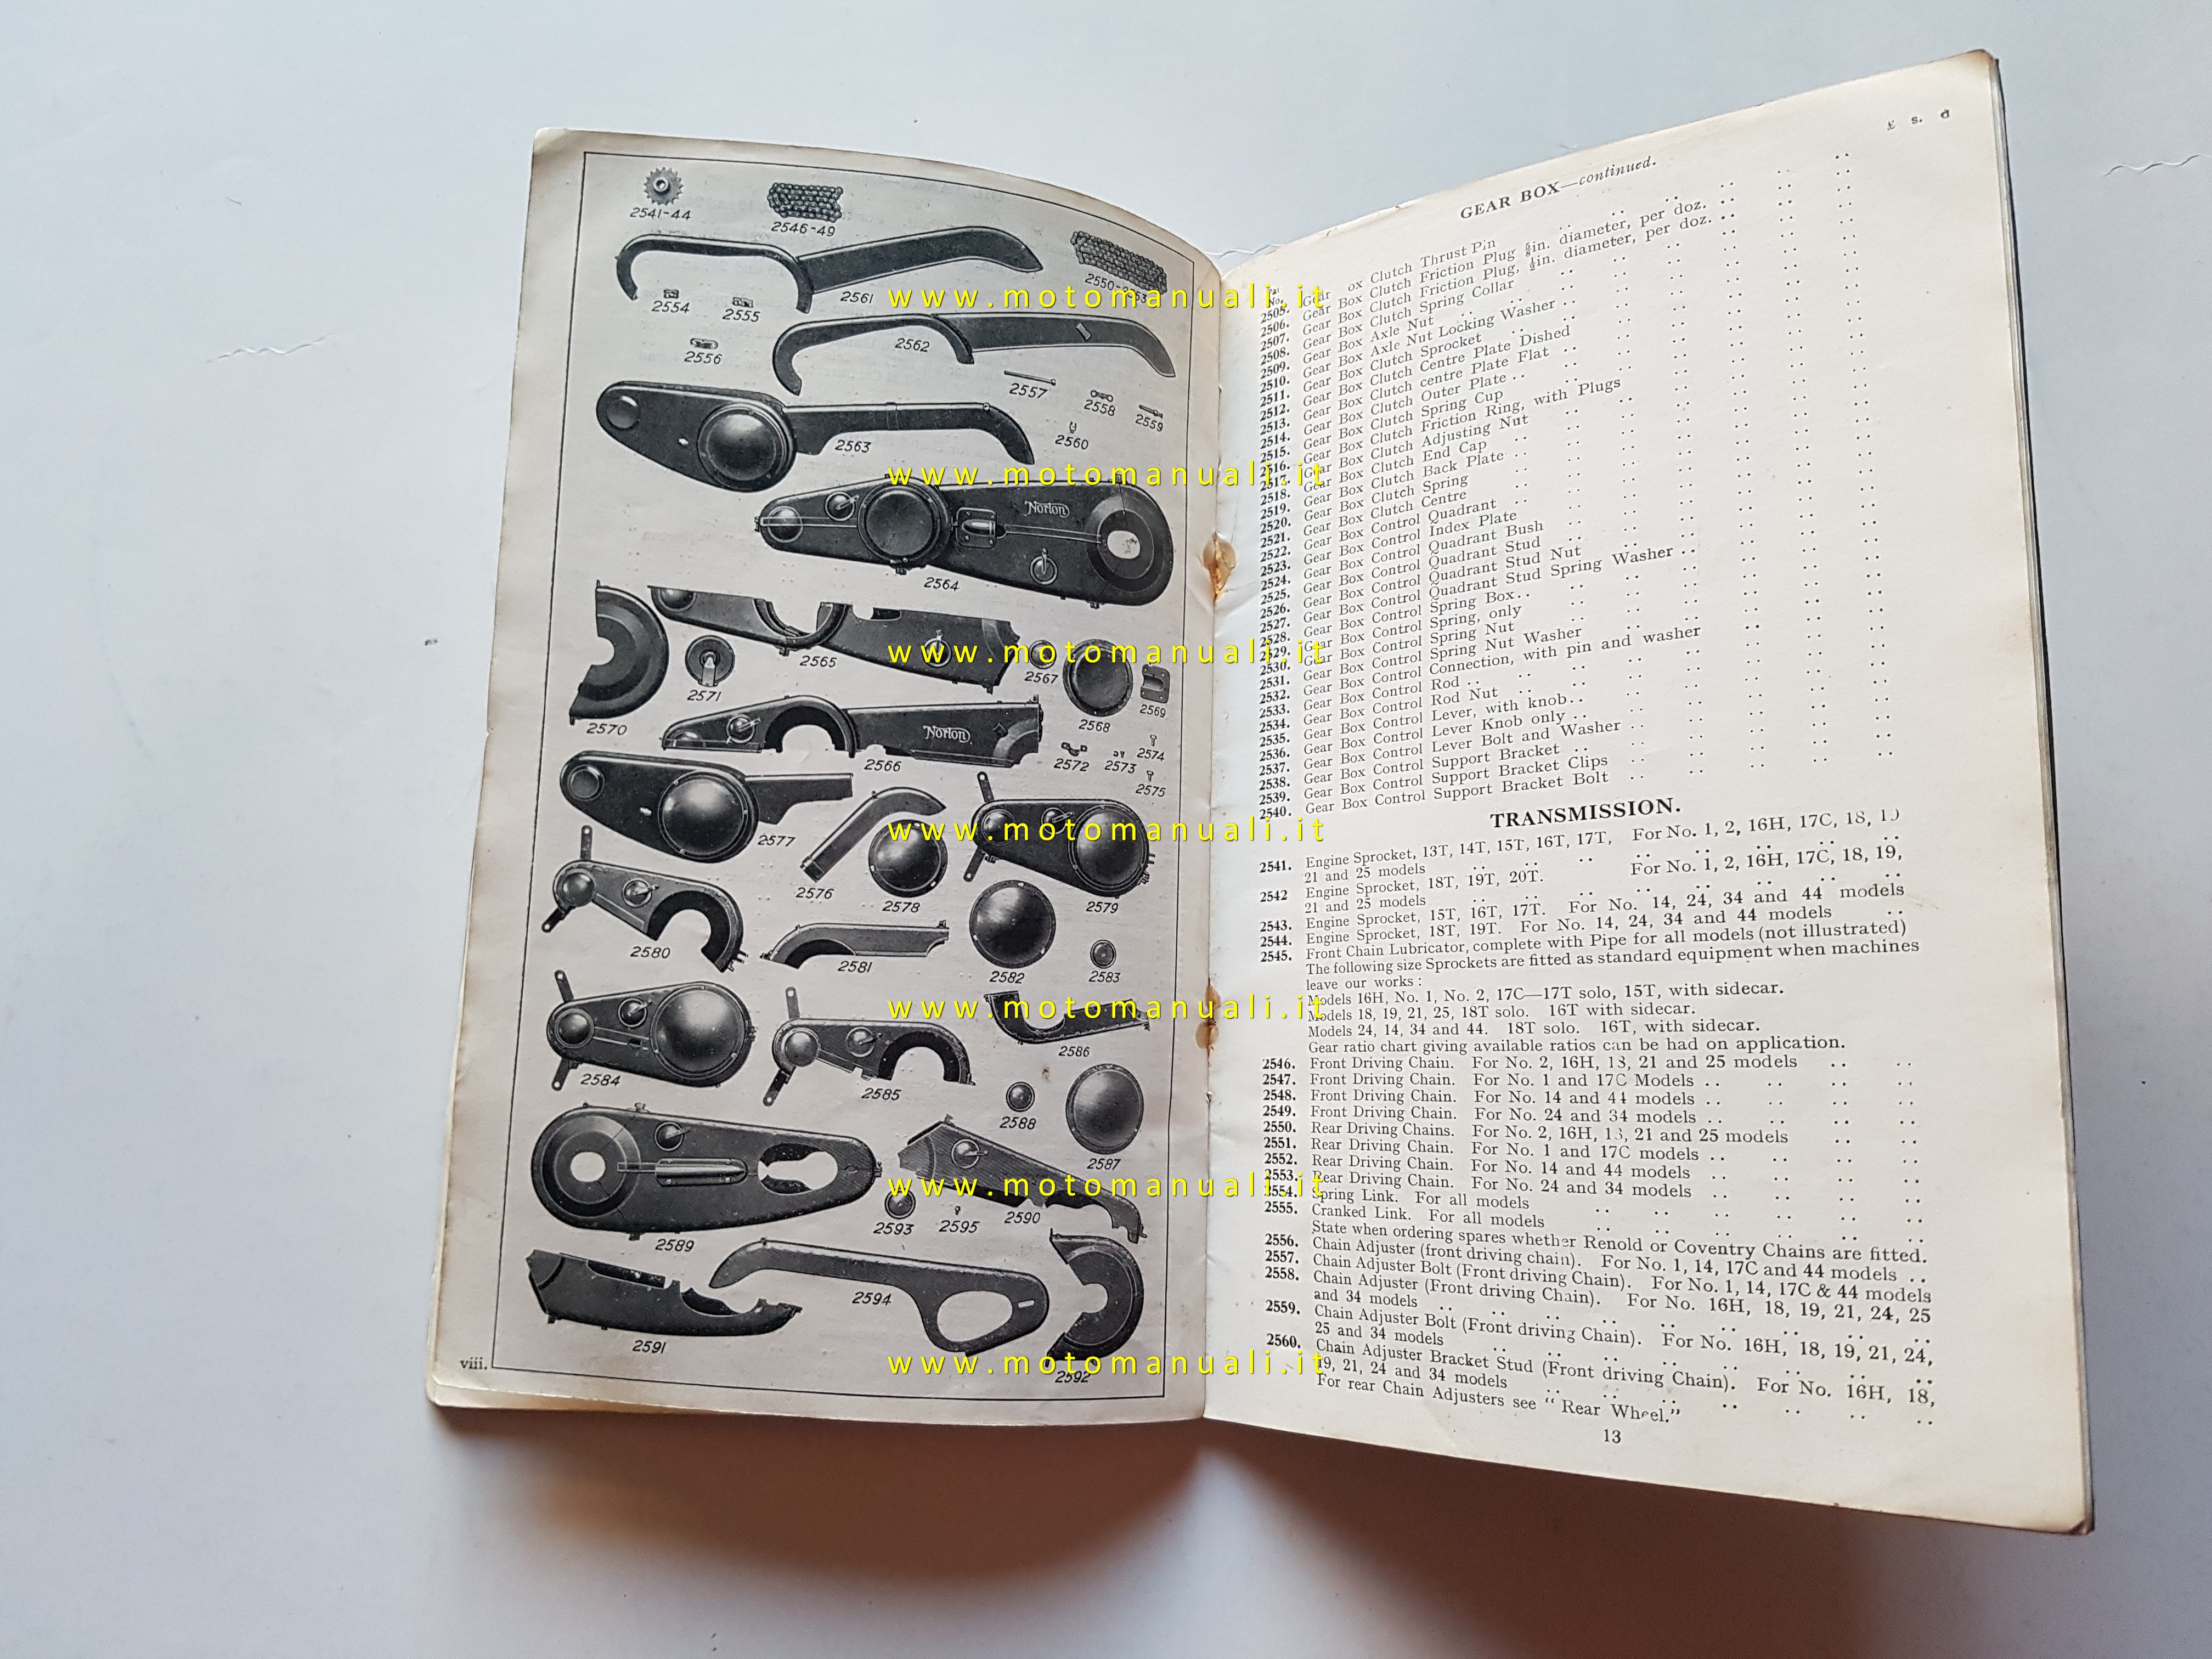 2541-44
2546-49
2554
2555
2561
2556
2562
2557
2558
2559
2560
2563
Norton
2564
2565
2567
2571
2570
2568
2569
Norton
2566
2572
2573
2574
2575
2577
2576
2578
2579
2580
2581
2582
2583
2584
2585
2586
2588
2587
2589
2593
2595
2590
2591
2594
2592
viii.
£ s. d
GEAR BOX—continued.
2505. Gear ox Clutch Thrust Pin
2506. Gear Box Clutch Friction Plug in. diameter, per doz.
2507. Gear Box Clutch Friction Plug, in. diameter, per doz.
2508. Gear Box Clutch Spring Collar
2509. Gear Box Axle Nut
2510. Gear Box Axle Nut Locking Washer
2511. Gear Box Clutch Sprocket
2512. Gear Box Clutch Centre Plate Dished
2513. Gear Box Clutch centre Plate Flat
2514. Gear Box Clutch Outer Plate
2515. Gear Box Clutch Spring Cup
2516. Gear Box Clutch Friction Ring, with Plugs
2517. Gear Box Clutch Adjusting Nut
2518. Gear Box Clutch End Cap
2519. Gear Box Clutch Back Plate
2520. Gear Box Clutch Spring
2521. Gear Box Clutch Centre
2522. Gear Box Control Quadrant
2523. Gear Box Control Index Plate
2524. Gear Box Control Quadrant Bush
2525. Gear Box Control Quadrant Stud
2526. Gear Box Control Quadrant Stud Nut
2527. Gear Box Control Quadrant Stud Spring Washer
2528. Gear Box Control Spring Box
2529. Gear Box Control Spring, only
2530. Gear Box Control Spring Nut
2531. Gear Box Control Spring Nut Washer
2532. Gear Box Control Connection, with pin and washer
2533. Gear Box Control Rod
2534. Gear Box Control Rod Nut
2535. Gear Box Control Lever, with knob
2536. Gear Box Control Lever Knob only
2537. Gear Box Control Lever Bolt and Washer
2538. Gear Box Control Support Bracket
2539. Gear Box Control Support Bracket Clips
2540. Gear Box Control Support Bracket Bolt
TRANSMISSION.
2541. Engine Sprocket, 13T, 14T, 15T, 16T, 17T, For No. 1, 2, 16H, 17C, 18,
21 and 25 models
2542 Engine Sprocket, 18T, 19T, 20T. For No. 1, 2, 16H, 17C, 18, 19,
21 and 25 models
2543. Engine Sprocket, 15T, 16T, 17T. For No. 14, 24, 34 and 44 models
2544. Engine Sprocket, 18T, 19T. For No. 14, 24, 34 and 44 models
2545. Front Chain Lubricator, complete with Pipe for all models (not illustrated)
The following size Sprockets are fitted as standard equipment when machines
leave our works :
Models 16H, No. 1, No. 2, 17C—17T solo, 15T, with sidecar.
Models 18, 19, 21, 25, 18T solo. 16T with sidecar.
Models 24, 14, 34 and 44. 18T solo. 16T, with sidecar.
Gear ratio chart giving available ratios can be had on application.
2546. Front Driving Chain. For No. 2, 16H, 18, 21 and 25 models
2547. Front Driving Chain. For No. 1 and 17C Models
2548. Front Driving Chain. For No. 14 and 44 models
2549. Front Driving Chain. For No. 24 and 34 models
2550. Rear Driving Chains. For No. 2, 16H, 18, 21 and 25 models
2551. Rear Driving Chain. For No. 1 and 17C models
2552. Rear Driving Chain. For No. 14 and 44 models
2553. Rear Driving Chain. For No. 24 and 34 models
2554. Spring Link. For all models
2555. Cranked Link. For all models
State when ordering spares whether Renold or Coventry Chains are fitted.
2556. Chain Adjuster (front driving chain). For No. 1, 14, 17C and 44 models
2557. Chain Adjuster Bolt (Front driving Chain). For No. 1, 14, 17C & 44 models
2558. Chain Adjuster (Front driving Chain). For No. 16H, 18, 19, 21, 24, 25
and 34 models
2559. Chain Adjuster Bolt (Front driving Chain). For No. 16H, 18, 19, 21, 24,
25 and 34 models
2560. Chain Adjuster Bracket Stud (Front driving Chain). For No. 16H, 18,
19, 21, 24 and 34 models
For rear Chain Adjusters see “ Rear Wheel.”
13
www.motomanuali.it
www.motomanuali.it
www.motomanuali.it
www.motomanuali.it
www.motomanuali.it
www.motomanuali.it
www.motomanuali.it